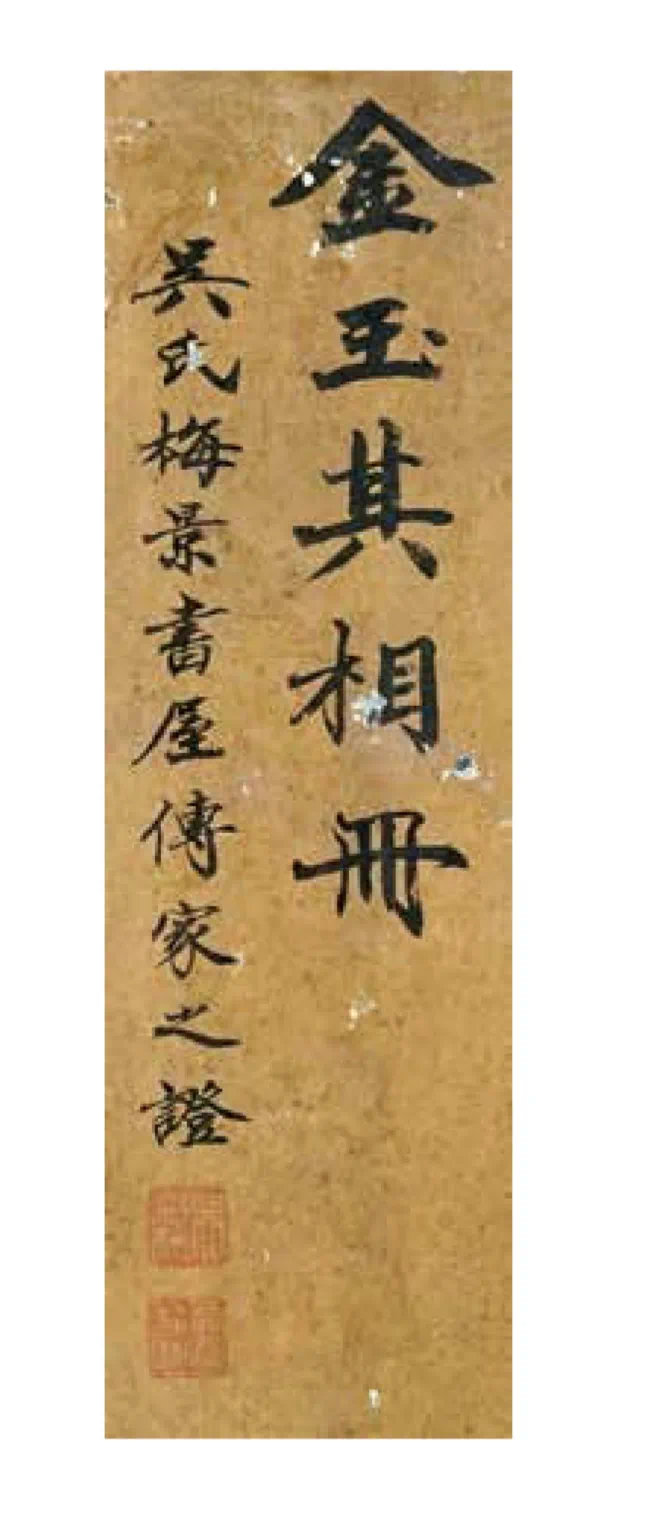 金玉其相冊
吳氏梅景書屋傳家之證